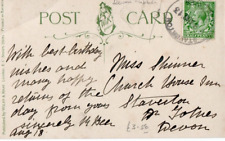 POST CARD
With best birthday
wishes and
many happy
returns of the
day from yours
sincerely
Aug 18
Miss Skinner
Church House Inn
Staverton
Nr Totnes
Devon